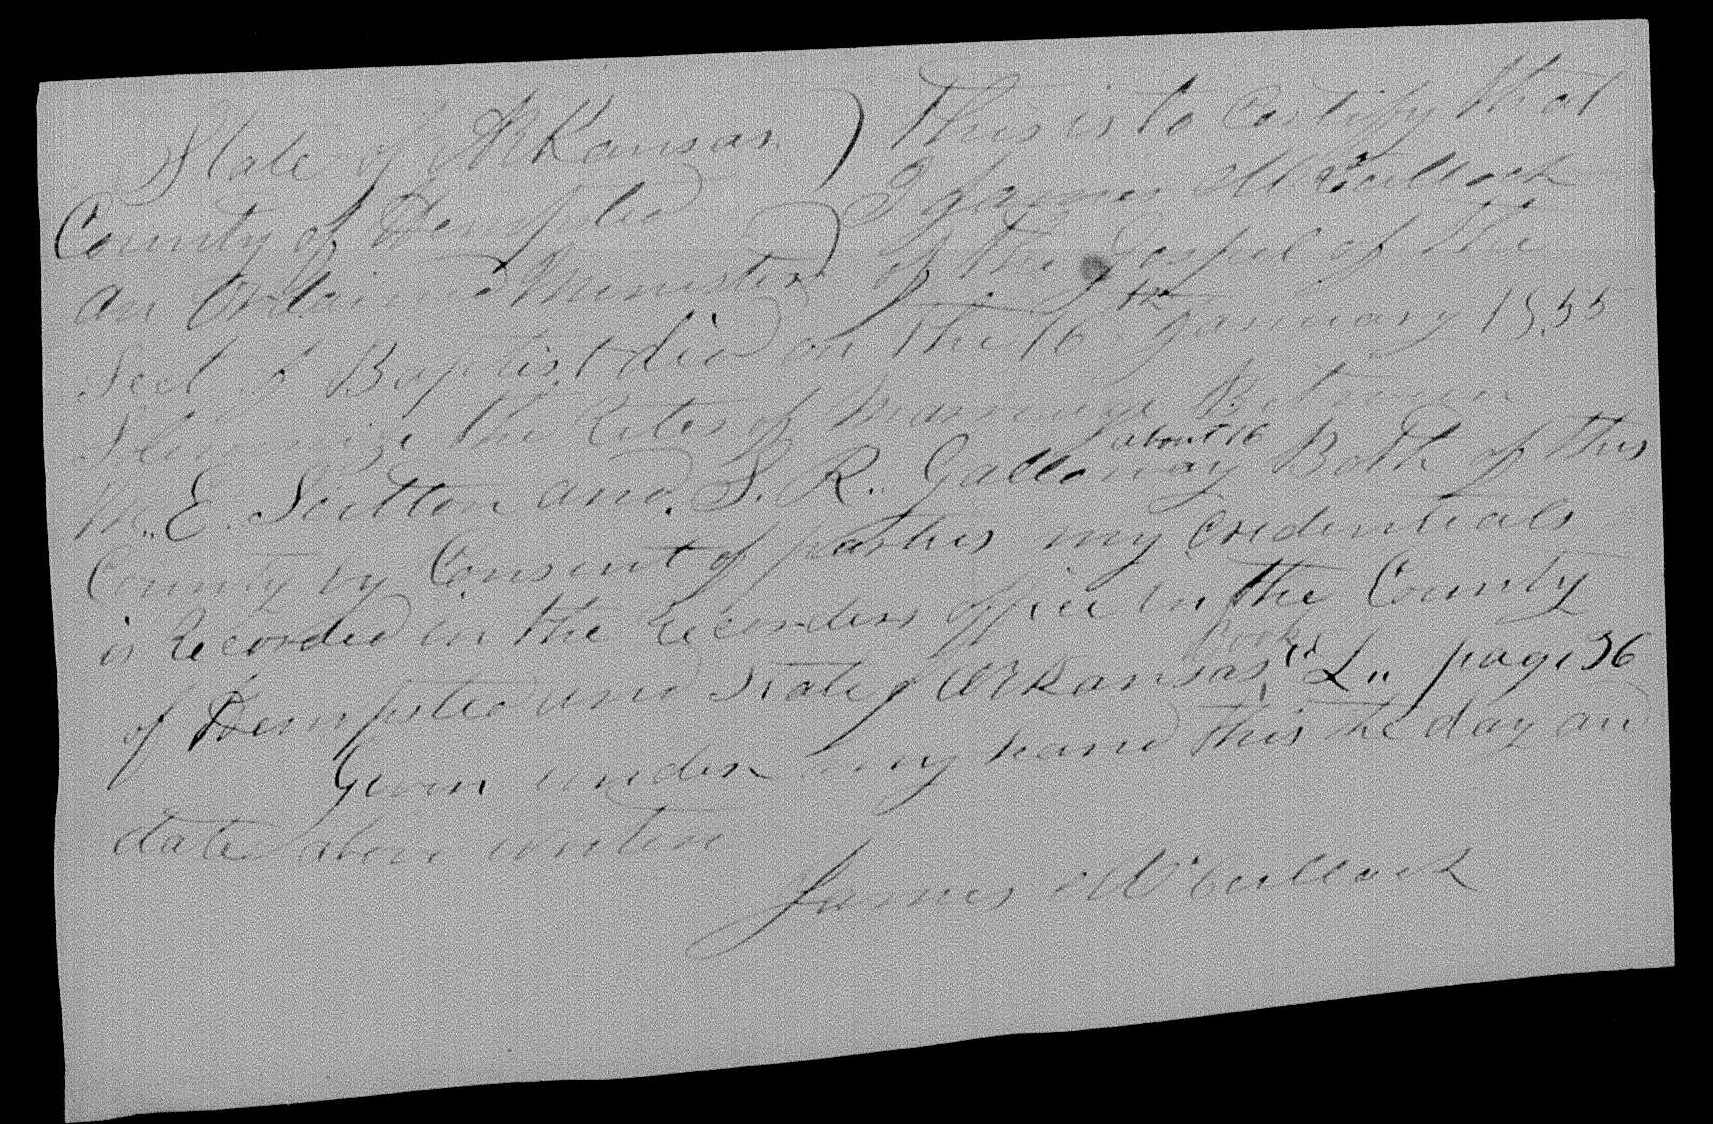 State of ARKansas ) This is to Certify that
County of Hempsted ) I James McCullock
an Ordained Minister of the Gospel of the
Sect of Baptist did on the 16th January 1855
Solemnize the Rites of Marriage Between
about 16
M. E. Sutton and S. R. Galloway Both of this
County by Consent of parties my credentials
is Recorded in the Recorders office in the County
Book
of Hempsted and State of ARKansas "L" page 36
Given under my hand this the day and
date above writen
James McCullock